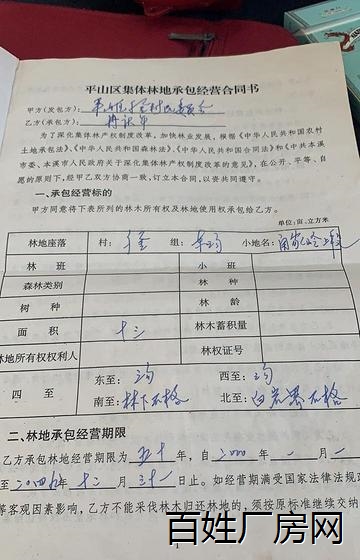 平山区集体林地承包经营合同书
甲方(发包方):
乙方(承包方):
为了深化集体林产权制度改革,加快林业发展,根据《中华人民共和国农村
土地承包法》、《中华人民共和国森林法》、《中华人民共和国合同法》和《中共本溪
市委、本溪市人民政府关于深化集体林产权制度改革的意见》,在公开、平等、自
愿的原则下,经甲乙双方协商一致,订立本合同,以资共同遵守。
一、承包经营标的
甲方同意将下表所列的林木所有权及林地使用权承包给乙方。
单位:亩、立方米
林地座落 村: 组: 小地名:
林 班 小 班
森林类别 林 种
树 种 林 龄
面 积 十三 林木蓄积量
林地所有权权利人 林权证号
四 至 东至: 沟 西至: 沟
南至: 林下石格 北至: 石格
二、林地承包经营期限
乙方承包林地经营期限为 五十 年,自 2000 年 一 月 一
至 年 十二 月 三十一 日止。如经营期满受国家法律法规政
等客观因素影响,乙方不能采伐林木归还林地的,须按原标准继续交纳
1
百姓厂房网